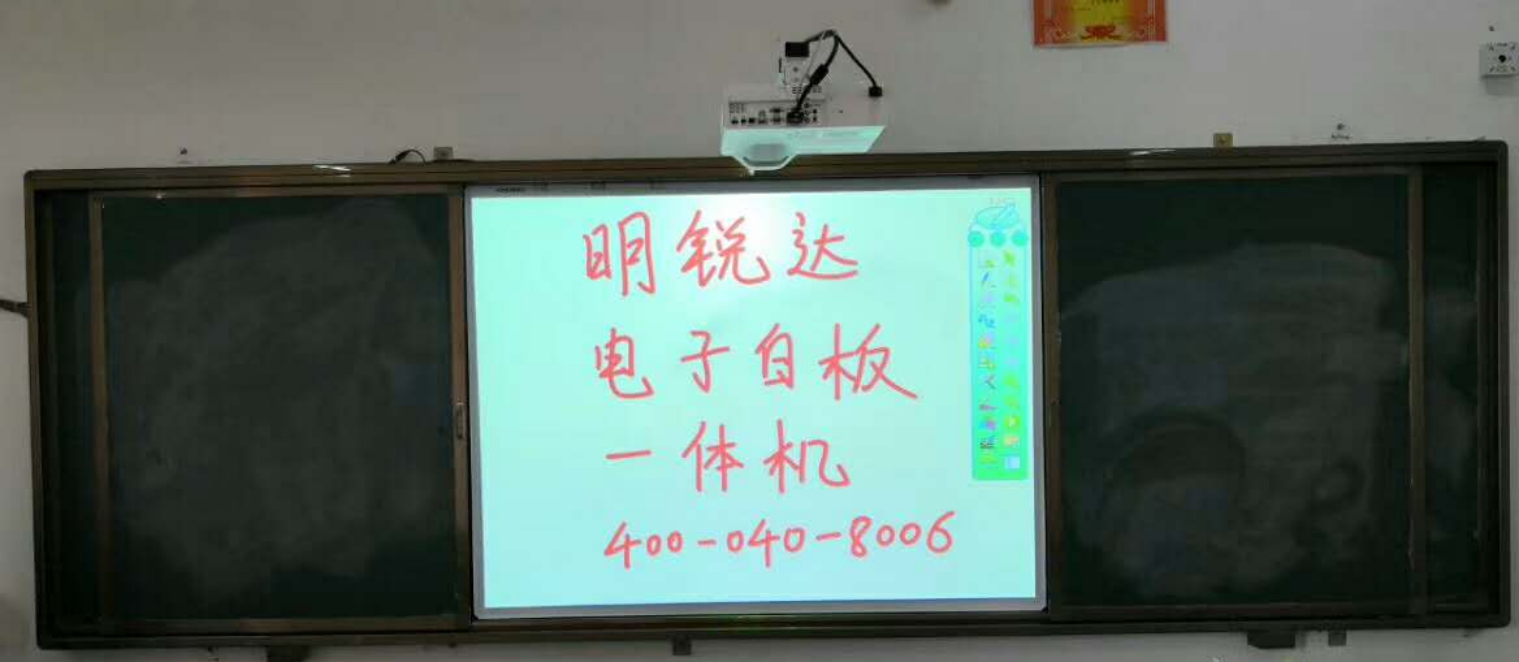 明锐达
电子白板
一体机
400-040-8006